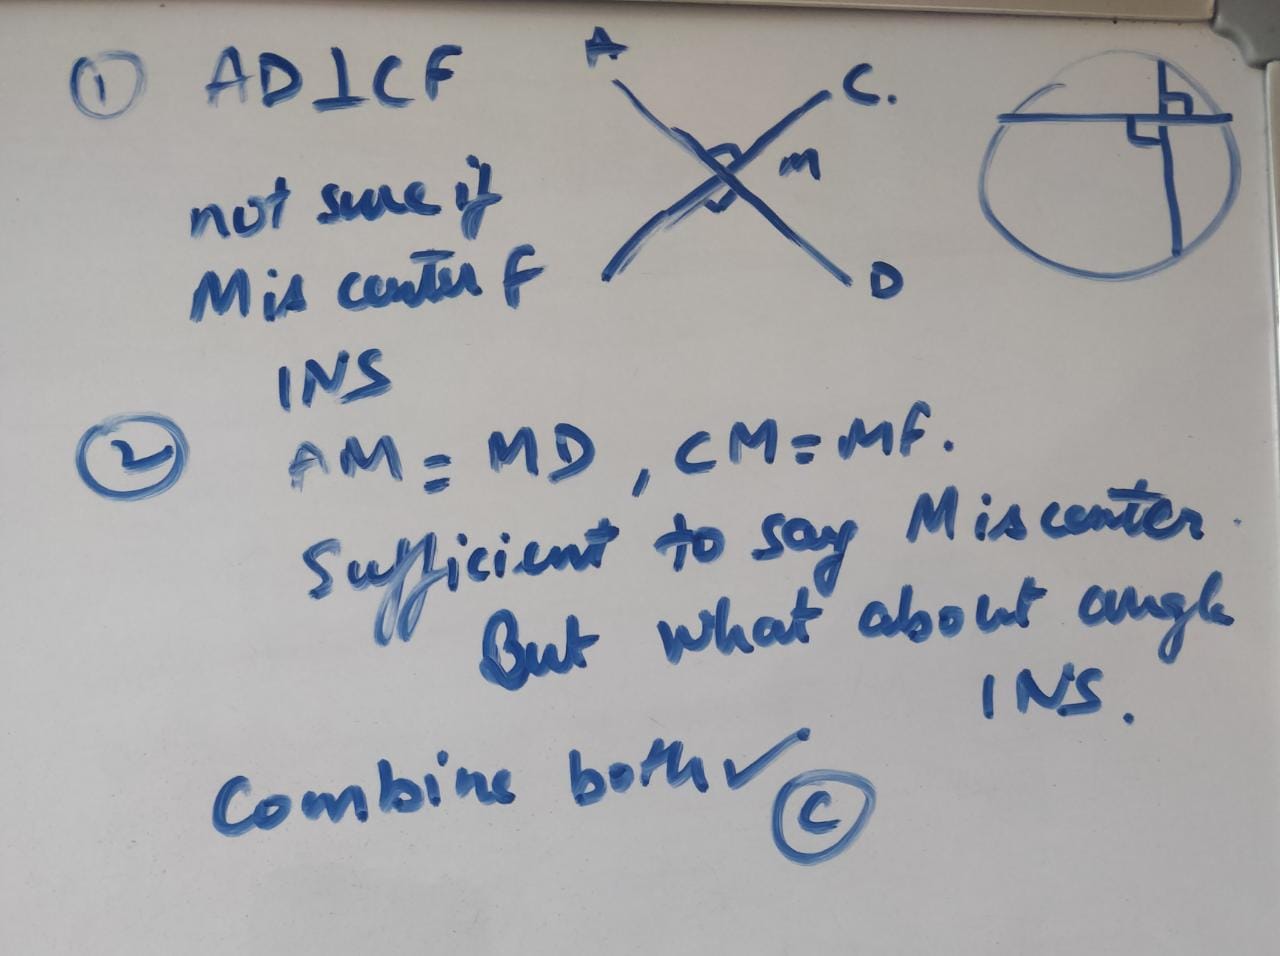 ① AD⊥CF
A
C.
M
D
not sure if
M is center F
INS
② AM = MD, CM = MF.
Sufficient to say M is center.
But what about angle
INS.
Combine both ✓ C